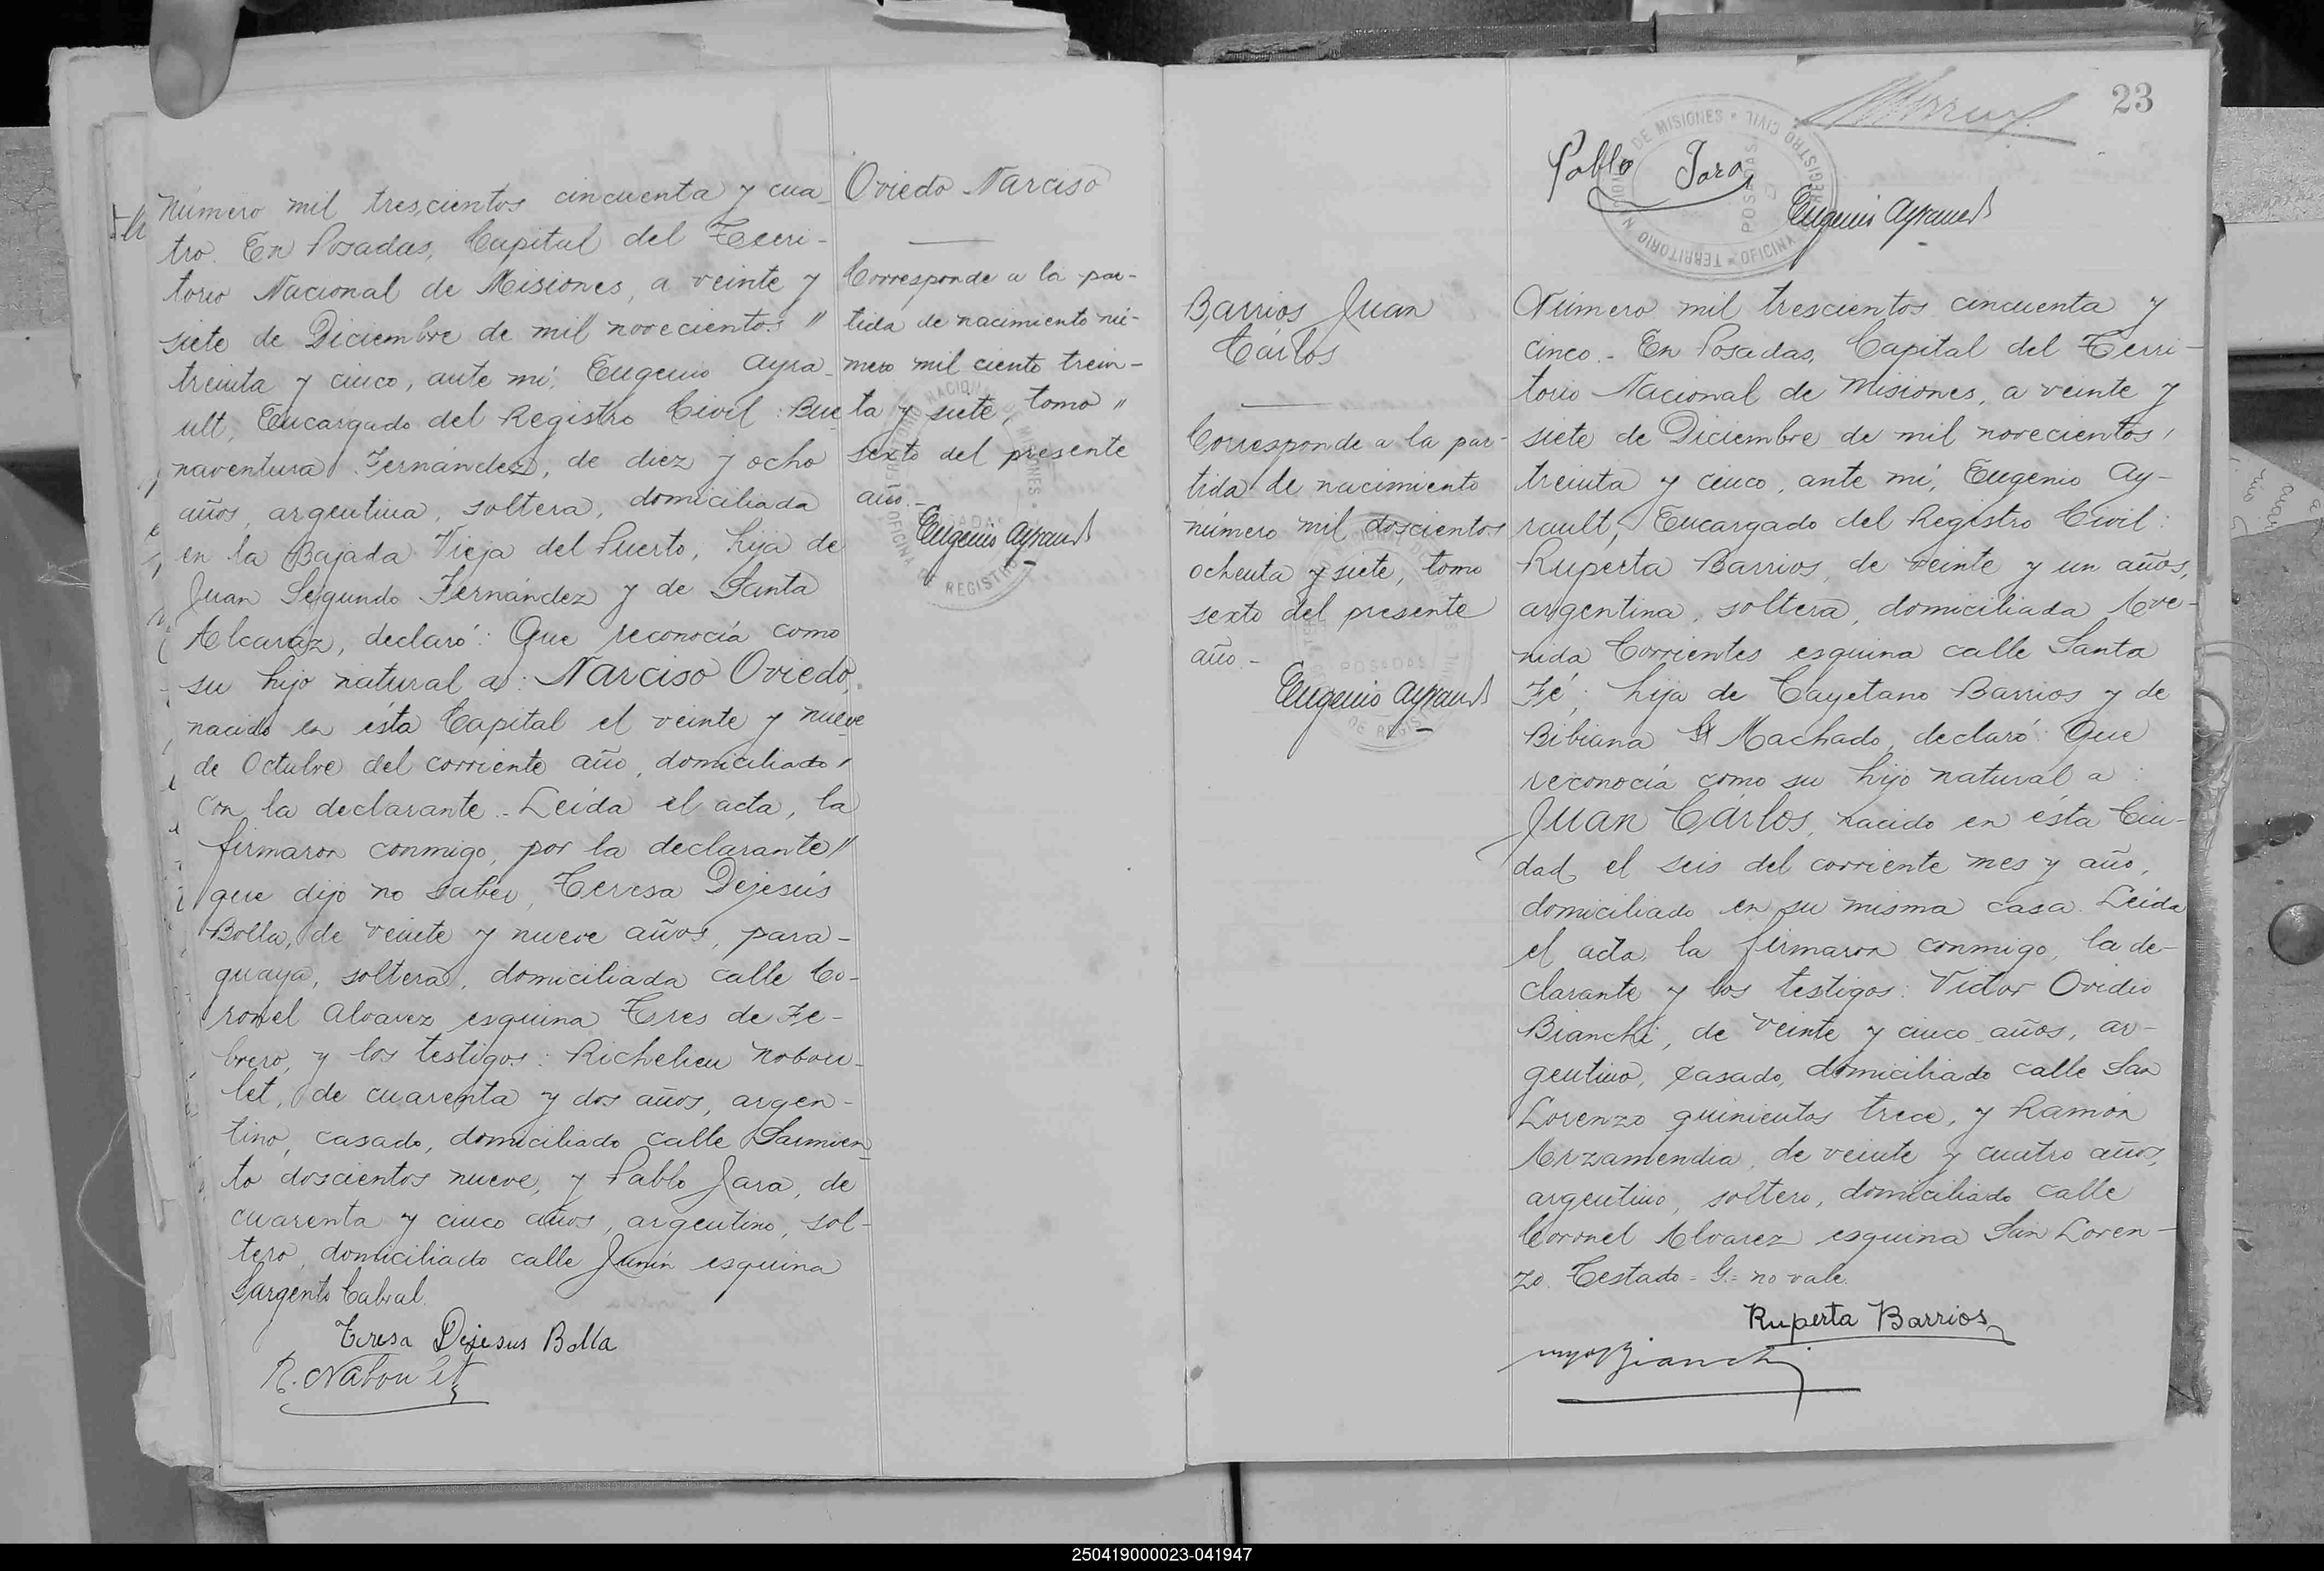 Número mil trescientos cincuenta y cua-
tro. En Posadas, Capital del Terri-
torio Nacional de Misiones, a veinte y
siete de Diciembre de mil novecientos "
treinta y cinco, ante mí, Eugenio Ayra-
ult, Encargado del Registro Civil: Bue-
naventura Fernández, de diez y ocho
años, argentina, soltera, domiciliada
en la Bajada Vieja del Puerto, hija de
Juan Segundo Fernández y de Santa
Alcaráz, declaró: Que reconocía como
su hijo natural a: Narciso Oviedo,
nacido en ésta Capital el veinte y nueve
de Octubre del corriente año, domiciliado
con la declarante.- Leída el acta, la
firmaron conmigo, por la declarante "
que dijo no saber, Teresa Dejesús
Bolla, de veinte y nueve años, para-
guaya, soltera, domiciliada calle Co-
ronel Alvarez esquina Tres de Fe-
brero, y los testigos: Richelieu Nabou-
let, de cuarenta y dos años, argen-
tino, casado, domiciliado calle Sarmien-
to doscientos nueve, y Pablo Jara, de
cuarenta y cinco años, argentino, sol-
tero, domiciliado calle Junín esquina
Sargento Cabral.
Teresa Dejesus Bolla
R. Naboulet
Oviedo Narciso
Corresponde a la par-
tida de nacimiento nú-
mero mil ciento trein-
ta y siete, tomo "
sexto del presente
año.-
Eugenio Ayrault
23
Pablo Jara
Eugenio Ayrault
Barrios Juan
Cárlos
Corresponde a la par-
tida de nacimiento
número mil doscientos
ochenta y siete, tomo
sexto del presente
año.-
Eugenio Ayrault
Número mil trescientos cincuenta y
cinco.- En Posadas, Capital del Terri-
torio Nacional de Misiones, a veinte y
siete de Diciembre de mil novecientos
treinta y cinco, ante mí, Eugenio Ay-
rault, Encargado del Registro Civil:
Ruperta Barrios, de veinte y un años,
argentina, soltera, domiciliada Ave-
nida Corrientes esquina calle Santa
Fé, hija de Cayetano Barrios y de
Bibiana G Machado, declaró: Que
reconocía como su hijo natural a:
Juan Cárlos, nacido en ésta Ciu-
dad el seis del corriente mes y año,
domiciliado en su misma casa. Leída
el acta, la firmaron conmigo, la de-
clarante y los testigos: Victor Ovidio
Bianchi, de veinte y cinco años, ar-
gentino, casado, domiciliado calle San
Lorenzo quinientos trece, y Ramón
Arzamendia, de veinte y cuatro años,
argentino, soltero, domiciliado calle
Coronel Alvarez esquina San Loren-
zo. Testado = G = no vale.
Ruperta Barrios
Bianchi
250419000023-041947